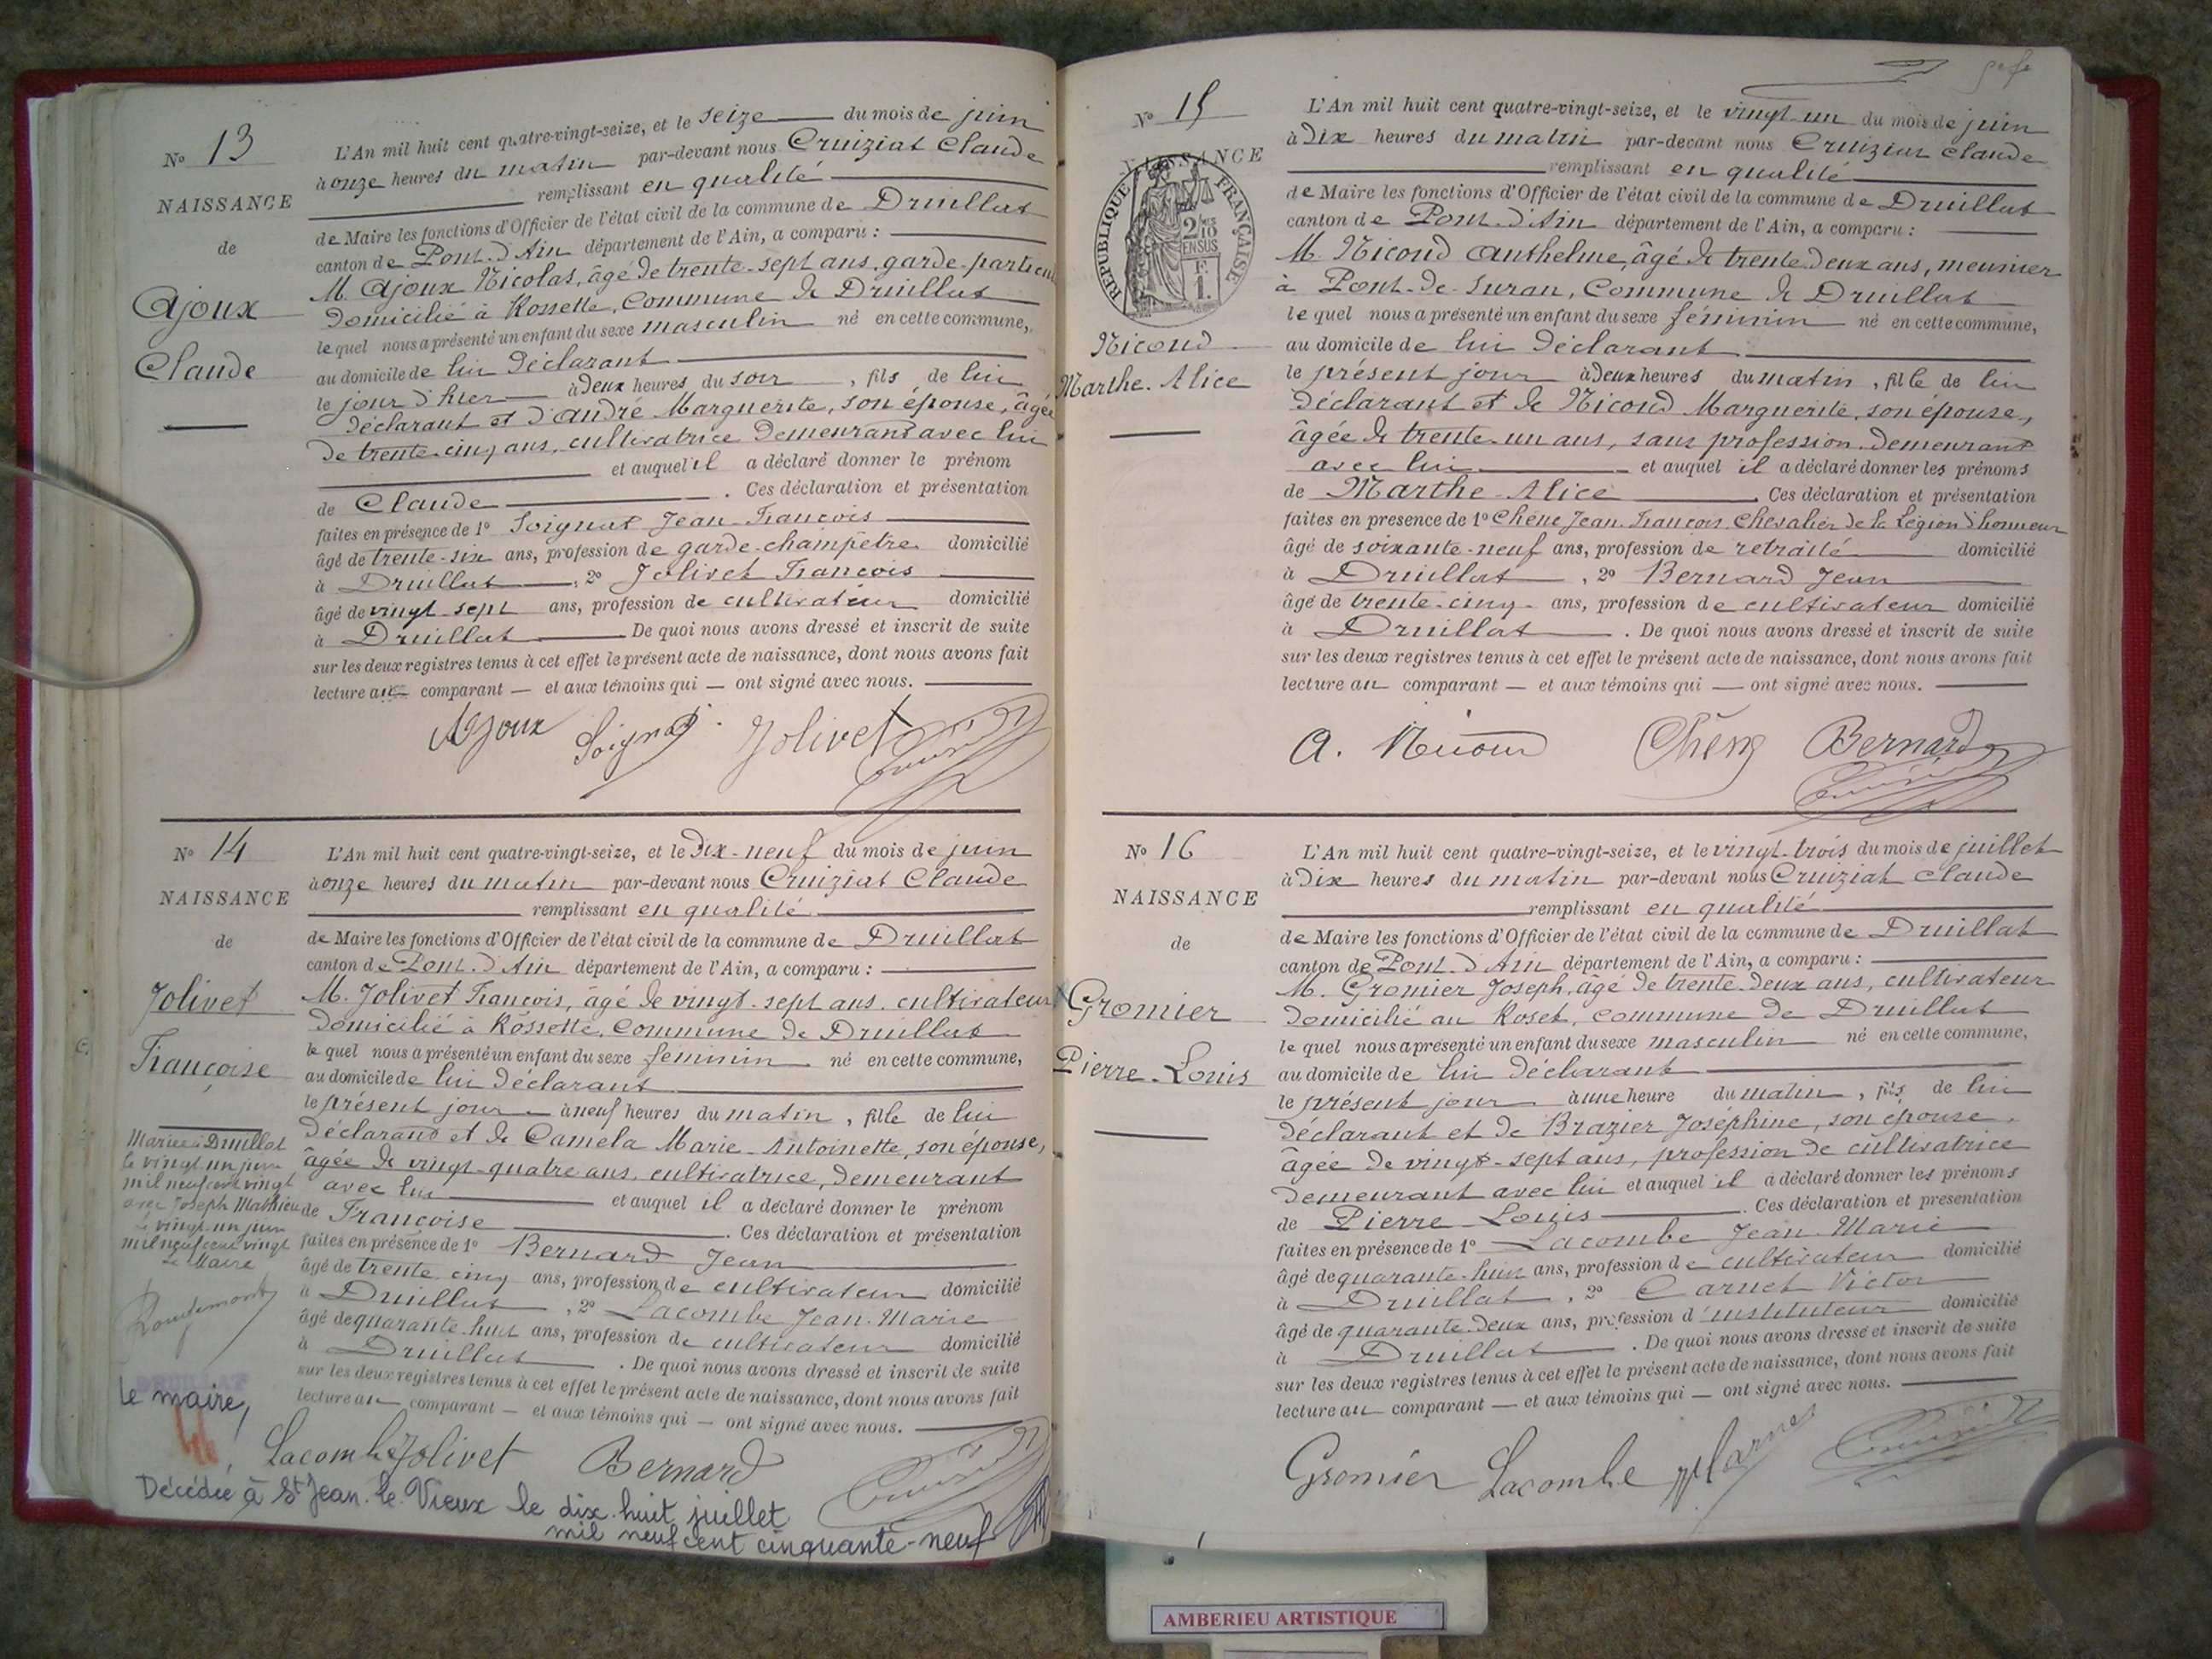 No 13
NAISSANCE
de
Ajoux
Claude
L'An mil huit cent quatre-vingt-seize, et le seize du mois de juin
à onze heures du matin par-devant nous Cruiziat Claude
remplissant en qualité
de Maire les fonctions d'Officier de l'état civil de la commune de Druillat
canton de Pont-d'Ain département de l'Ain, a comparu :
M. Ajoux Nicolas, âgé de trente-sept ans, garde-particu
domicilié à Rossette, Commune de Druillat
le quel nous a présenté un enfant du sexe masculin né en cette commune,
au domicile de lui déclarant
le jour d'hier à deux heures du soir, fils de lui
déclarant et d'André Marguerite, son épouse, âgée
de trente-cinq ans, cultivatrice demeurant avec lui
et auquel il a déclaré donner le prénom
de Claude. Ces déclaration et présentation
faites en présence de 1° Soignat Jean-François
âgé de trente-six ans, profession de garde-champêtre domicilié
à Druillat, 2° Jolivet François
âgé de vingt-sept ans, profession de cultivateur domicilié
à Druillat De quoi nous avons dressé et inscrit de suite
sur les deux registres tenus à cet effet le présent acte de naissance, dont nous avons fait
lecture au comparant — et aux témoins qui — ont signé avec nous.
Ajoux Soignat Jolivet
No 14
NAISSANCE
de
Jolivet
Françoise
Mariée à Druillat
le vingt-un juin
mil neuf cent vingt
avec Joseph Mathieu
Le vingt-un juin
mil neuf cent vingt
Le Maire
DRUILLAT
le maire,
L'An mil huit cent quatre-vingt-seize, et le dix-neuf du mois de juin
à onze heures du matin par-devant nous Cruiziat Claude
remplissant en qualité
de Maire les fonctions d'Officier de l'état civil de la commune de Druillat
canton de Pont-d'Ain département de l'Ain, a comparu :
M. Jolivet François, âgé de vingt-sept ans, cultivateur
domicilié à Rossette, Commune de Druillat
le quel nous a présenté un enfant du sexe féminin né en cette commune,
au domicile de lui déclarant
le présent jour à neuf heures du matin, fille de lui
déclarant et de Camela Marie-Antoinette, son épouse,
âgée de vingt-quatre ans, cultivatrice, demeurant
avec lui et auquel il a déclaré donner le prénom
de Françoise. Ces déclaration et présentation
faites en présence de 1° Bernard Jean
âgé de trente-cinq ans, profession de cultivateur domicilié
à Druillat, 2° Lacombe Jean-Marie
âgé de quarante-huit ans, profession de cultivateur domicilié
à Druillat. De quoi nous avons dressé et inscrit de suite
sur les deux registres tenus à cet effet le présent acte de naissance, dont nous avons fait
lecture au comparant — et aux témoins qui — ont signé avec nous.
Lacombe Jolivet Bernard
Décédée à St Jean-le-Vieux le dix-huit juillet
mil neuf cent cinquante-neuf
No 15
NAISSANCE
RÉPUBLIQUE FRANÇAISE
2/10 EN SUS
F. 1.
Nicoud
Marthe-Alice
L'An mil huit cent quatre-vingt-seize, et le vingt-un du mois de juin
à dix heures du matin par-devant nous Cruiziat Claude
remplissant en qualité
de Maire les fonctions d'Officier de l'état civil de la commune de Druillat
canton de Pont-d'Ain département de l'Ain, a comparu :
M. Nicoud Anthelme, âgé de trente-deux ans, meunier
à Pont-de-Suran, Commune de Druillat
le quel nous a présenté un enfant du sexe féminin né en cette commune,
au domicile de lui déclarant
le présent jour à deux heures du matin, fille de lui
déclarant et de Nicoud Marguerite, son épouse,
âgée de trente-un ans, sans profession demeurant
avec lui et auquel il a déclaré donner les prénoms
de Marthe-Alice. Ces déclaration et présentation
faites en presence de 1° Chêne Jean-François Chevalier de la Légion d'honneur
âgé de soixante-neuf ans, profession de retraité domicilié
à Druillat, 2° Bernard Jean
âgé de trente-cinq ans, profession de cultivateur domicilié
à Druillat. De quoi nous avons dressé et inscrit de suite
sur les deux registres tenus à cet effet le présent acte de naissance, dont nous avons fait
lecture au comparant — et aux témoins qui — ont signé avec nous.
A. Nicoud Chêne Bernard
No 16
NAISSANCE
de
Gromier
Pierre-Louis
L'An mil huit cent quatre-vingt-seize, et le vingt-trois du mois de juillet
à dix heures du matin par-devant nous Cruiziat Claude
remplissant en qualité
de Maire les fonctions d'Officier de l'état civil de la commune de Druillat
canton de Pont-d'Ain département de l'Ain, a comparu :
M. Gromier Joseph, âgé de trente-deux ans, cultivateur
domicilié au Roset, commune de Druillat
le quel nous a présenté un enfant du sexe masculin né en cette commune,
au domicile de lui déclarant
le présent jour à une heure du matin, fils de lui
déclarant et de Brazier Joséphine, son épouse,
âgée de vingt-sept ans, profession de cultivatrice
demeurant avec lui et auquel il a déclaré donner les prénoms
de Pierre-Louis. Ces déclaration et présentation
faites en présence de 1° Lacombe Jean-Marie
âgé de quarante-huit ans, profession de cultivateur domicilié
à Druillat, 2° Carnet Victor
âgé de quarante-deux ans, profession d'instituteur domicilié
à Druillat. De quoi nous avons dressé et inscrit de suite
sur les deux registres tenus à cet effet le présent acte de naissance, dont nous avons fait
lecture au comparant — et aux témoins qui — ont signé avec nous.
Gromier Lacombe
AMBERIEU ARTISTIQUE